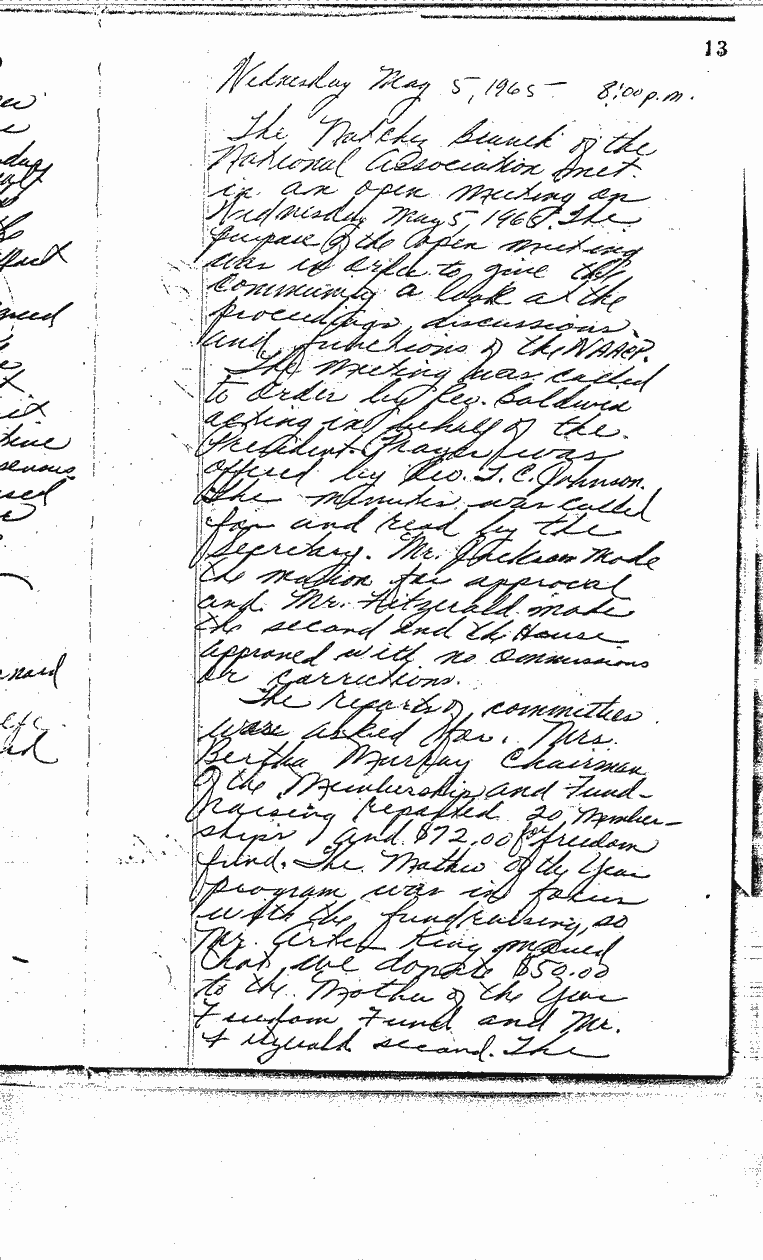 13
Wednesday May 5, 1965 - 8:00 p.m.
The Natchez Branch of the
National Association met
in an open meeting on
Wednesday May 5, 1965. The
purpose of the open meeting
was in order to give the
community a look at the
proceedings, discussions,
and functions of the NAACP.
The meeting was called
to order by Rev. Baldwin
acting in behalf of the
President. Prayer was
offered by Rev. T. C. Johnson.
The minutes was called
for and read by the
Secretary. Mr. Jackson made
the motion for approval
and Mr. Fitzgerald made
the second and the House
approved with no ommissions
or corrections.
The reports of committees
was asked for. Mrs.
Bertha Murray Chairman
of the Membership and Fund-
raising reported 20 member-
ships and $72.00 for freedom
fund. The Mother of the Year
program was in focus
with the fundraising, so
Mr. King moved
that we donate $50.00
to the Mother of the Year
Freedom Fund and Mr.
Fitzgerald second. The